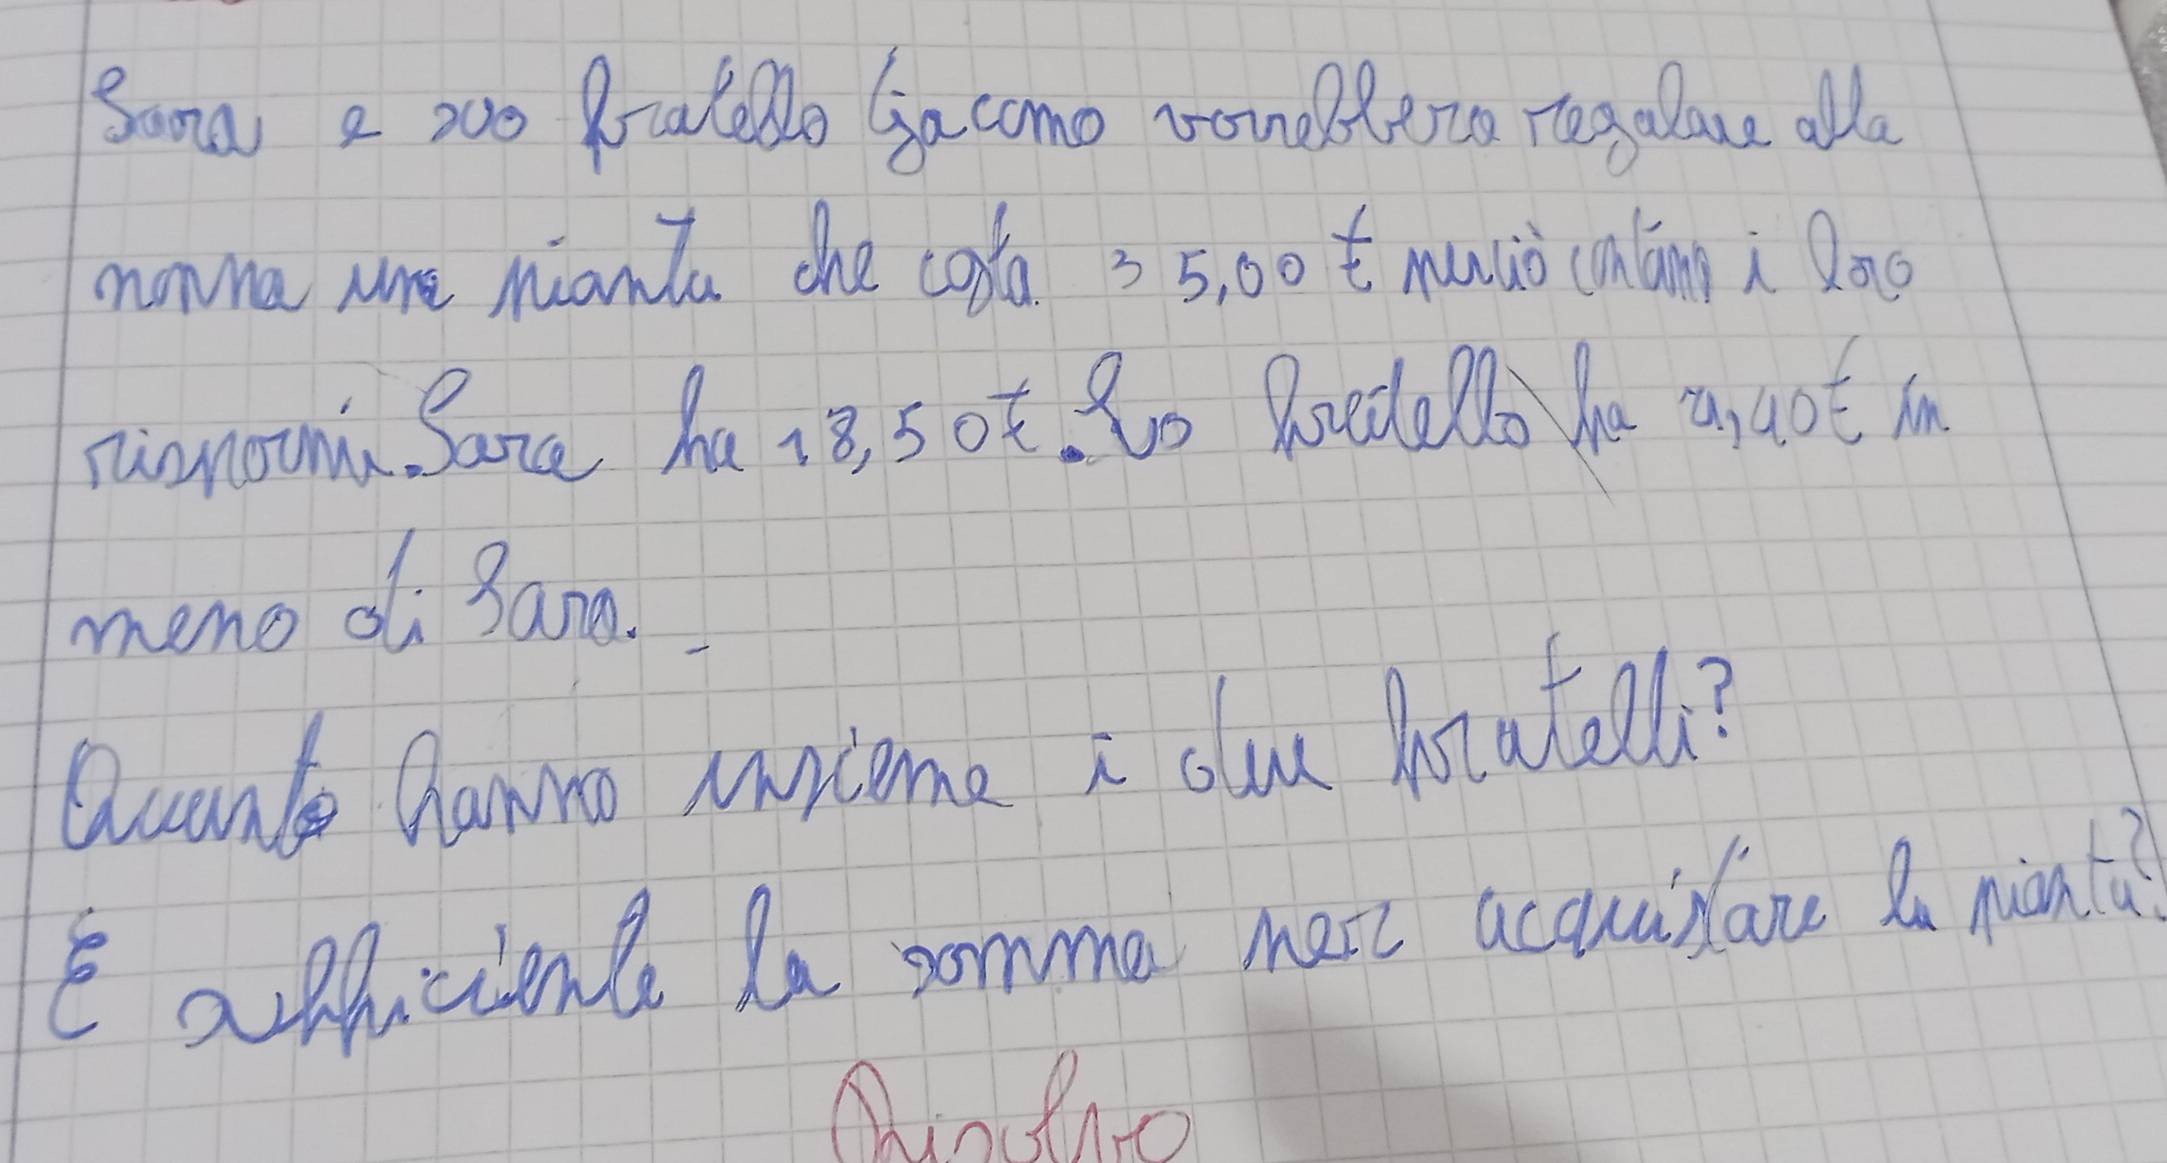 Sara e suo fratello Giacomo vorrebbero regalare alla
nonna una pianta che costa 35,00 € perciò contano i loro
risparmi. Sara ha 18,50 €. Suo fratello ha €  in
meno di Sara.
Quanto hanno insieme i due fratelli?
È sufficiente la somma per acquistare la pianta?
Risolvo